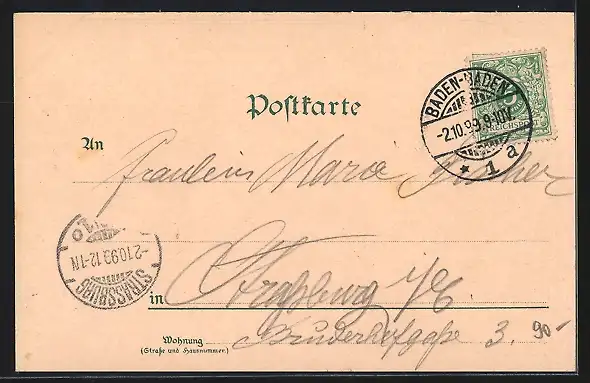 Postkarte
BADEN-BADEN
-2.10.99.9-10V.
* 1 a
5
REICHSPOST
An
Fräulein Marie Fischer
-2.10.99.12-1N
STRASSBURG
in Straßburg i/E
Wohnung
(Straße und Hausnummer.)
Bruderhofgaße 3.
90-